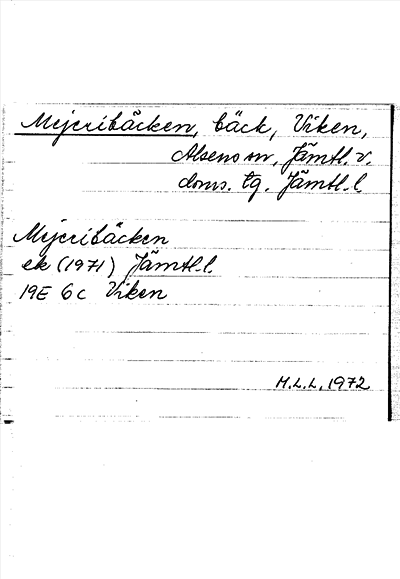 Mejeribäcken, bäck, Viken,
Alsens sn, Jämtl. v.
doms. tg. Jämtl. l.
Mejeribäcken
ek (1971) Jämtl. l.
19E 6c Viken
H.L.L. 1972